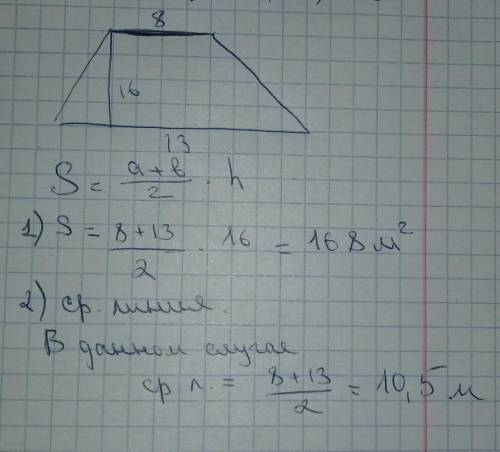 8
16
13
S = a+b/2 · h
1) S = 8+13/2 · 16 = 168 м²
2) ср. линия.
В данном случае
ср л. = 8+13/2 = 10,5 м